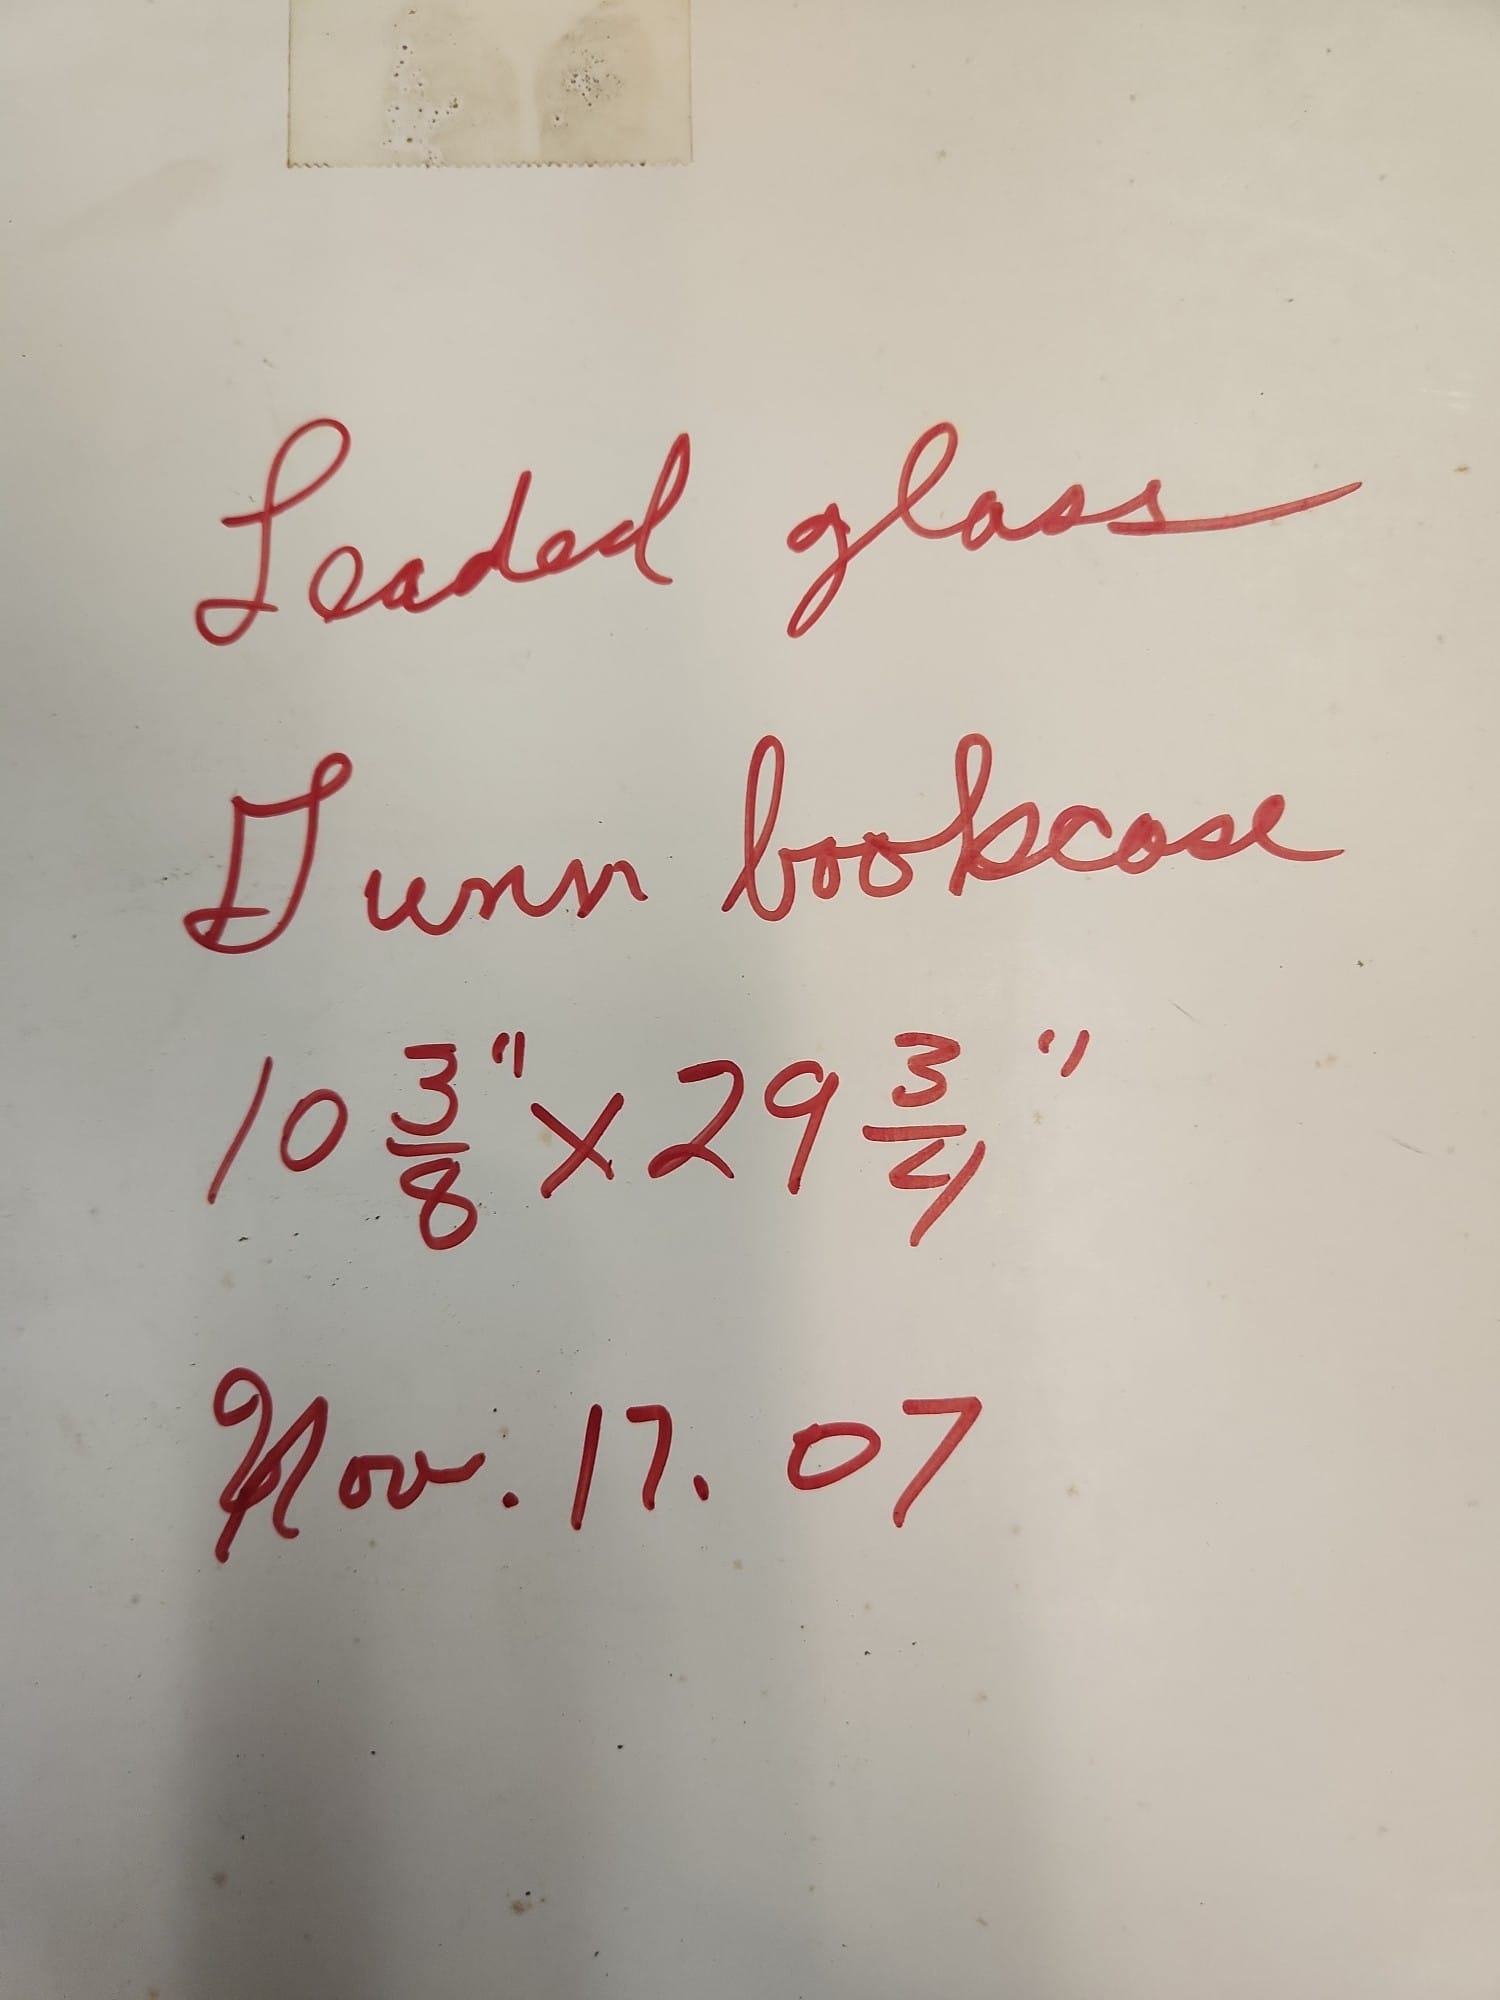 Leaded glass
Gunn bookcase
10 3/8" x 29 3/4"
Nov. 17. 07